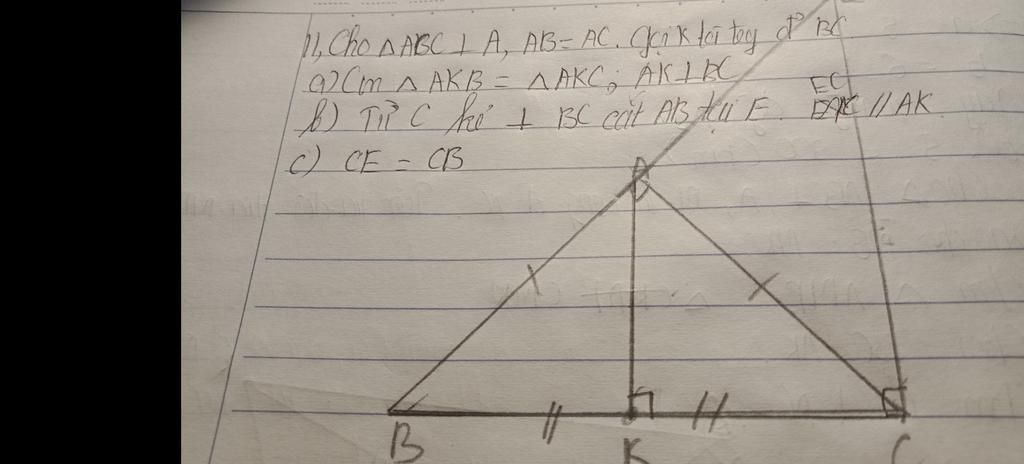 11, Cho △ABC ⊥ A, AB = AC. Gọi K là tđ BC
a) Cm △AKB = △AKC; AK ⊥ BC
EC
b) Từ C kẻ ⊥ BC cắt AB tại E. // AK
c) CE = CB
A
B
K
C